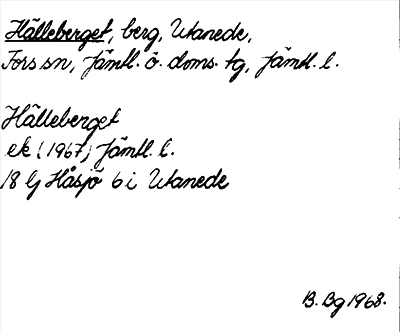 Hälleberget, berg, Utanede,
Fors sn, Jämtl. ö. doms. tg, Jämtl. l.
Hälleberget
ek (1967) Jämtl. l.
18 G Håsjö 6 i Utanede
B. Bg 1968.